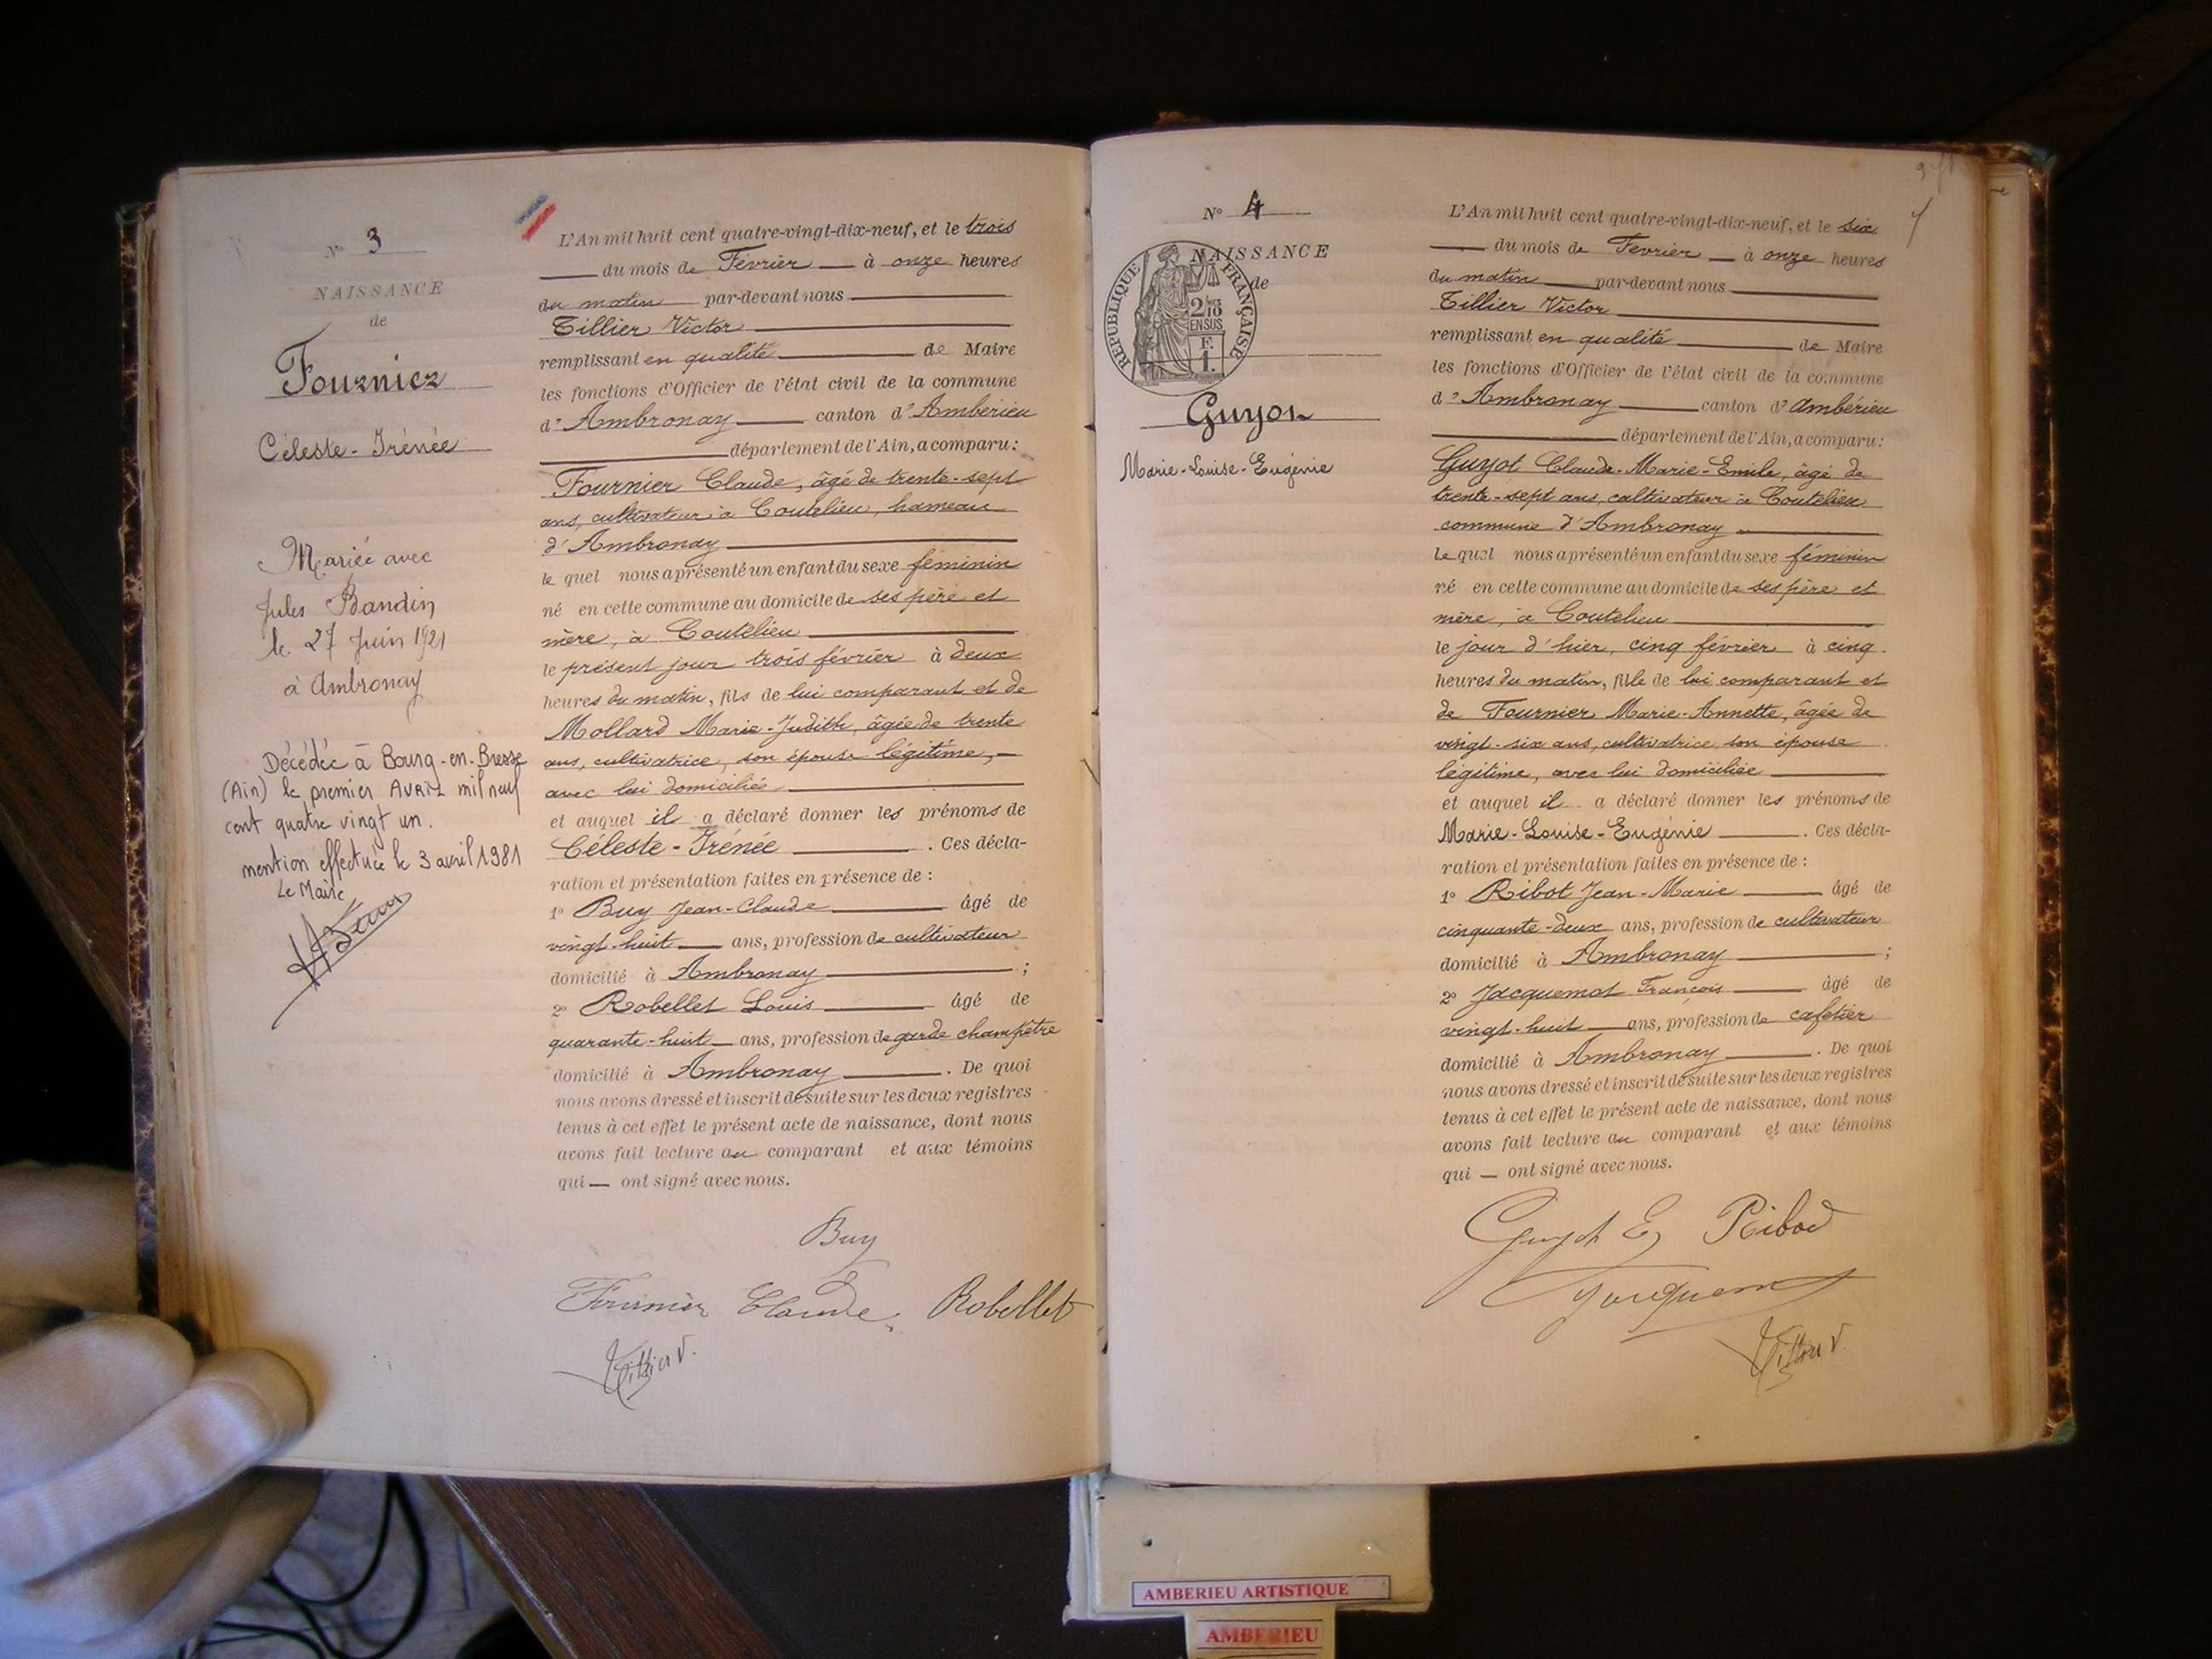 N° 3
NAISSANCE
de
Fournier
Céleste-Irénée
Mariée avec
Jules Bandin
le 27 Juin 1921
à Ambronay
Décédée à Bourg-en-Bresse
(Ain) le premier AVRIL mil neuf
cent quatre vingt un.
mention effectuée le 3 avril 1981
Le Maire
L'An mil huit cent quatre-vingt-dix-neuf, et le trois
du mois de Février à onze heures
du matin par-devant nous
Tillier Victor
remplissant en qualité de Maire
les fonctions d'Officier de l'état civil de la commune
d'Ambronay canton d'Ambérieu
département de l'Ain, a comparu:
Fournier Claude, âgé de trente-sept
ans, cultivateur à Coutelieu, hameau
d'Ambronay
le quel nous a présenté un enfant du sexe féminin
né en cette commune au domicile de ses père et
mère, à Coutelieu
le présent jour trois février à deux
heures du matin, fils de lui comparant et de
Mollard Marie-Judith, âgée de trente
ans, cultivatrice, son épouse légitime,
avec lui domiciliée
et auquel il a déclaré donner les prénoms de
Céleste-Irénée . Ces décla-
ration et présentation faites en présence de :
1° Buy Jean-Claude âgé de
vingt-huit ans, profession de cultivateur
domicilié à Ambronay ;
2° Robellet Louis âgé de
quarante-huit ans, profession de garde champêtre
domicilié à Ambronay . De quoi
nous avons dressé et inscrit de suite sur les deux registres
tenus à cet effet le présent acte de naissance, dont nous
avons fait lecture au comparant et aux témoins
qui — ont signé avec nous.
Buy
Fournier Claude Robellet
Tillier V.
N° 4
NAISSANCE
de
REPUBLIQUE FRANÇAISE
2/10
EN SUS
F.
1.
Guyon
Marie-Louise-Eugénie
L'An mil huit cent quatre-vingt-dix-neuf, et le six
du mois de Février à onze heures
du matin par-devant nous
Tillier Victor
remplissant en qualité de Maire
les fonctions d'Officier de l'état civil de la commune
d'Ambronay canton d'Ambérieu
département de l'Ain, a comparu:
Guyot Claude-Marie-Emile, âgé de
trente-sept ans, cultivateur à Coutelieu
commune d'Ambronay
le quel nous a présenté un enfant du sexe féminin
né en cette commune au domicile de ses père et
mère, à Coutelieu
le jour d'hier, cinq février à cinq
heures du matin, fille de lui comparant et
de Fournier Marie-Annette, âgée de
vingt-six ans, cultivatrice, son épouse
légitime, avec lui domiciliée
et auquel il a déclaré donner les prénoms de
Marie-Louise-Eugénie . Ces décla-
ration et présentation faites en présence de :
1° Ribot Jean-Marie âgé de
cinquante-deux ans, profession de cultivateur
domicilié à Ambronay ;
2° Jacquemot François âgé de
vingt-huit ans, profession de cafetier
domicilié à Ambronay . De quoi
nous avons dressé et inscrit de suite sur les deux registres
tenus à cet effet le présent acte de naissance, dont nous
avons fait lecture au comparant et aux témoins
qui — ont signé avec nous.
Guyot E Ribod
Jacquemot
Tillier V.
AMBERIEU ARTISTIQUE
AMBERIEU